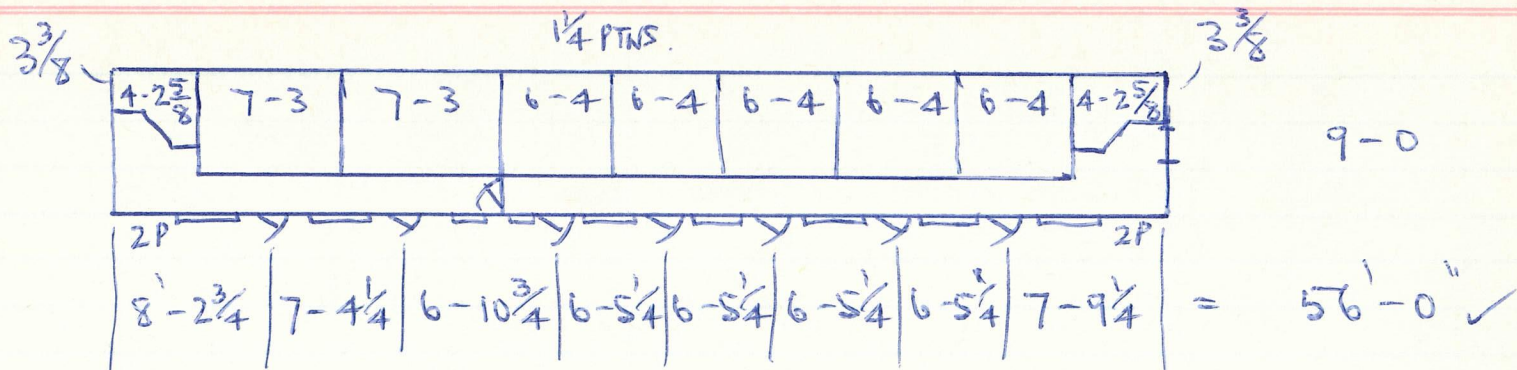 1¼ PTNS.
3⅜ 3⅜
4-2⅝ 7-3 7-3 6-4 6-4 6-4 6-4 6-4 4-2⅝
9-0
2P 2P
8'-2¾ 7-4¼ 6-10¾ 6-5¼ 6-5¼ 6-5¼ 6-5¼ 7-9¼ = 56'-0" ✓